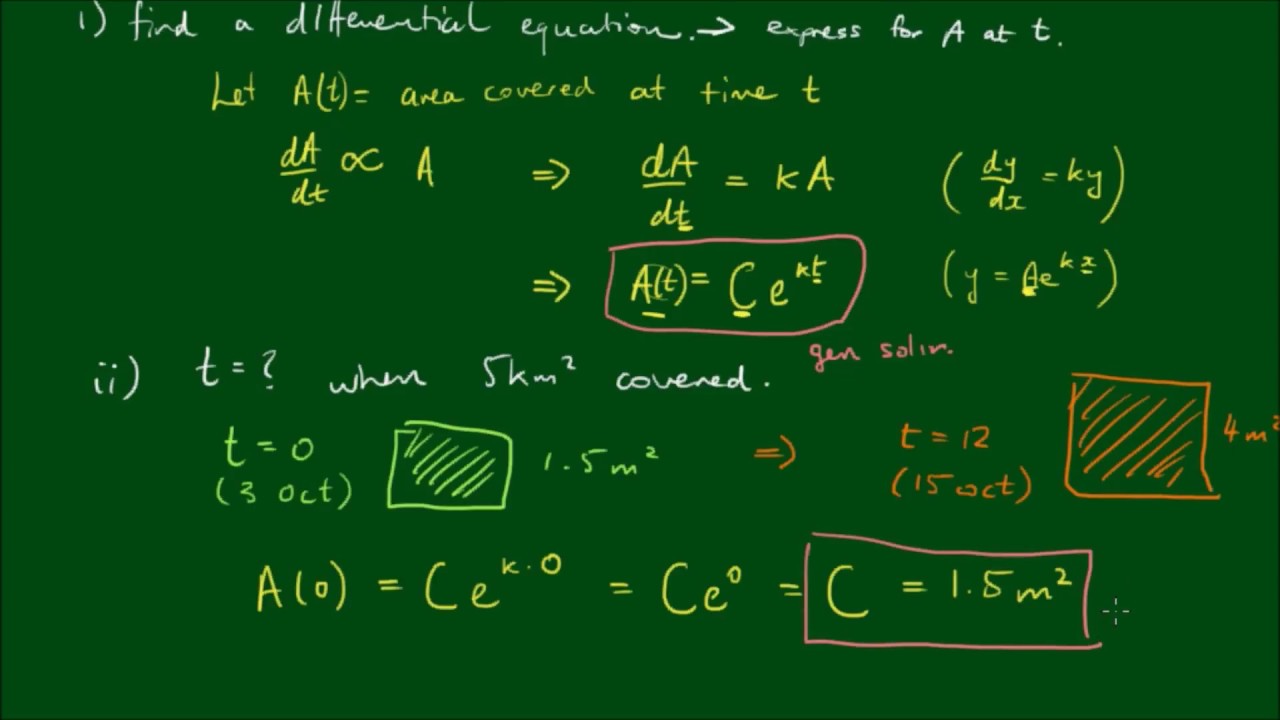 i) find a differential equation. → express for A at t.
Let A(t) = area covered at time t
dA/dt ∝ A ⇒ dA/dt = kA (dy/dx = ky)
⇒ A(t) = Ce^{kt} (y = Ae^{kx})
gen solin.
ii) t = ? when 5km² covered.
t = 0 1.5m² ⇒ t = 12 4m²
(3 oct) (15 oct)
A(0) = Ce^{k·0} = Ce^0 = C = 1.5m²